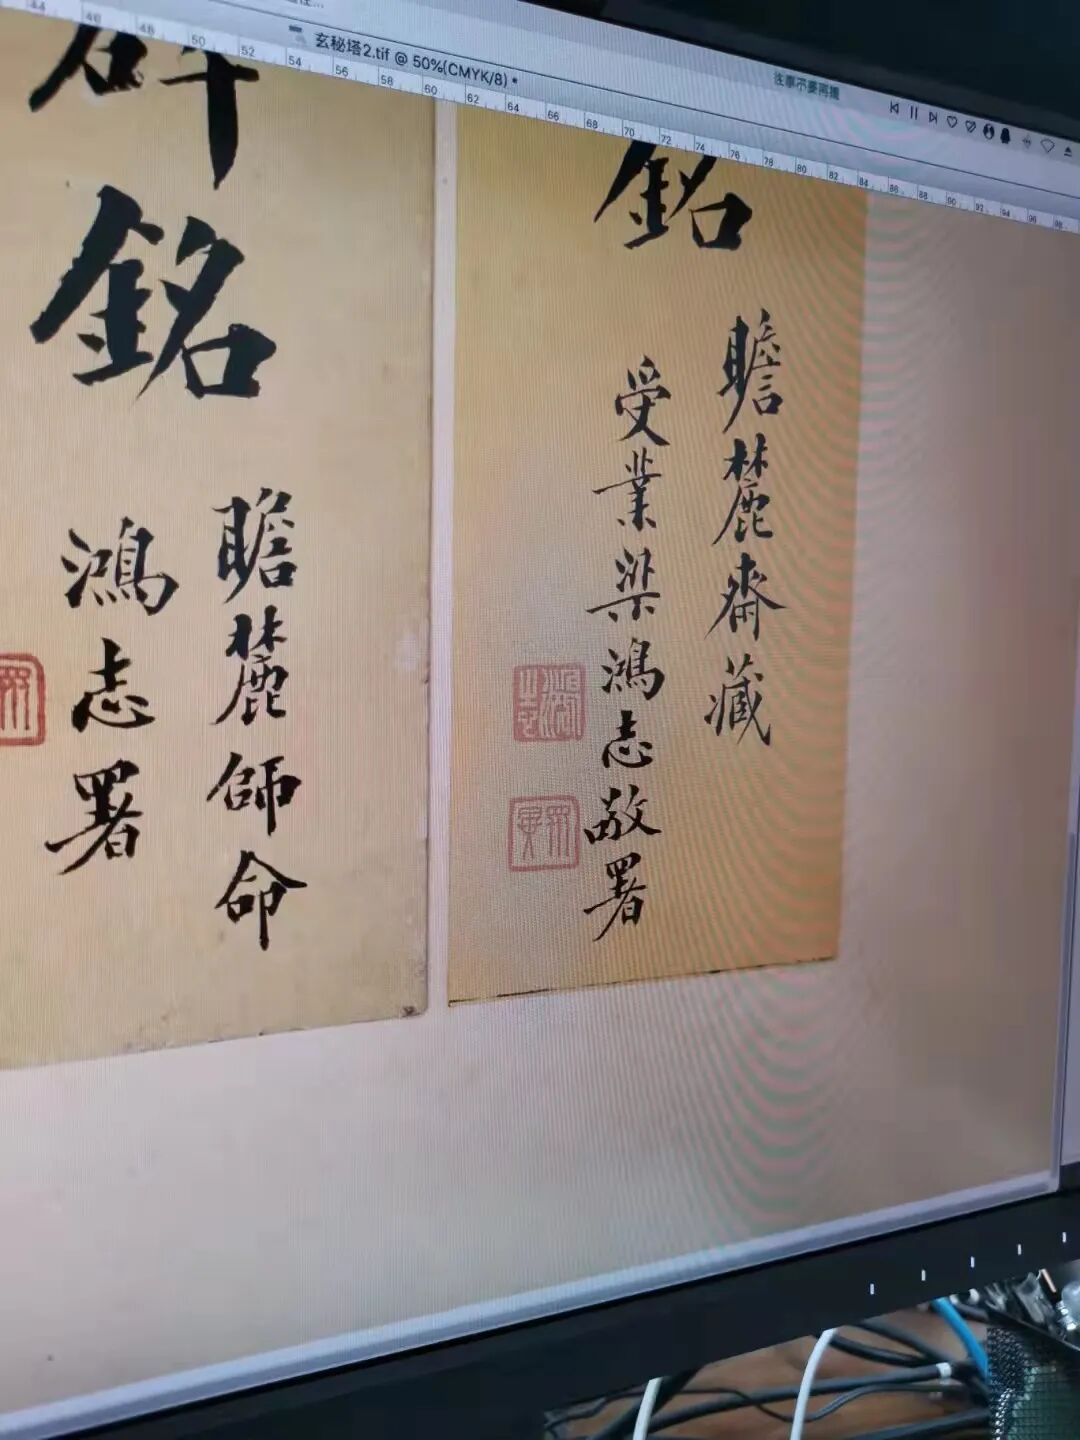 玄秘塔2.tif @ 50%(CMYK/8) *
往事不要再提
44 46 48 50 52 54 56 58 60 62 64 66 68 70 72 74 76 78 80 82 84 86 88 90 92 94 96 98
銘
瞻麓齋藏
受業梁鴻志敬署
碑銘
瞻麓師命
鴻志署